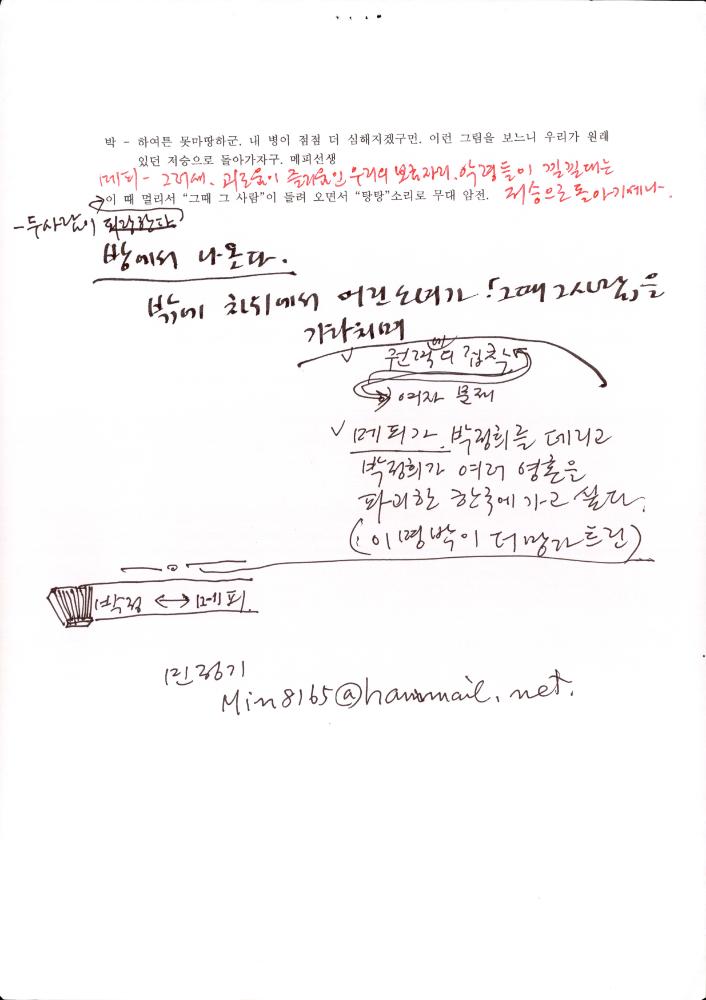 박 - 하여튼 못마땅하군. 내 병이 점점 더 심해지겠구먼. 이런 그림을 보느니 우리가 원래
있던 저승으로 돌아가자구. 메피선생
메피 - 그러세. 괴로움이 즐거움인 우리의 보금자리. 악령들이 낄낄대는
저승으로 돌아가세나.
이 때 멀리서 “그때 그 사람”이 들려 오면서 “탕탕”소리로 무대 암전.
- 두사람이 퇴장한다
방에서 나온다.
밖에 차뒤에서 어린소녀가 「그때 그사람」을
가르치며
권력에의 집착
여자 문제
메피가 박정희를 데리고
박정희가 여러 영혼을
파괴한 한국에 가고 싶다.
(이명박이 더 망가트린)
박정 ↔ 메피
민정기
Min8165@hanmail.net.